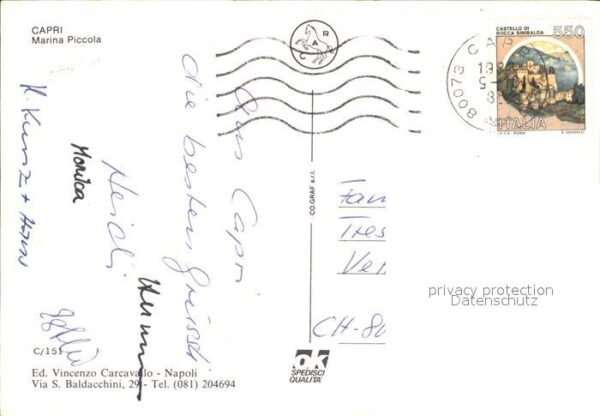 CAPRI
Marina Piccola
CASTELLO DI
ROCCA SINIBALDA
550
ITALIA
80073 CAP
C A R
Aus Capri
die besten Grüsse
Heidi
Monica
K. Kunz +
CO.GRAF s.r.l.
Fam
Tres
Ver
CH-80
privacy protection
Datenschutz
OK
SPEDISCI
QUALITA'
C/151
Ed. Vincenzo Carcavallo - Napoli
Via S. Baldacchini, 29 - Tel. (081) 204694